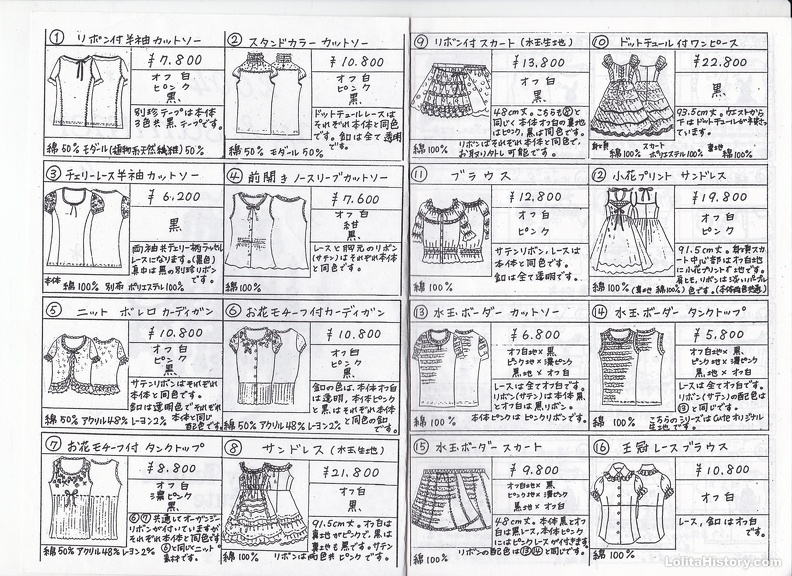 ① リボン付半袖カットソー
¥7,800
オフ白
ピンク
黒
別珍テープは本体
3色共黒テープです。
綿50% モダール(植物系天然繊維)50%
② スタンドカラーカットソー
¥10,800
オフ白
ピンク
黒
ドットチュールレースは
それぞれ本体と同色
です。釦は全て透明
です。
綿50% モダール50%
③ チェリーレース半袖カットソー
¥6,200
黒
両袖共チェリー柄ラッセル
レースになります。(黒色)
真中は黒の別珍リボン
です。
本体 綿100% 別布 ポリエステル100%
④ 前開きノースリーブカットソー
¥7,600
オフ白
紺
黒
レースと胸元のリボン
(サテン)はそれぞれ本体
と同色です。
綿100%
⑤ ニット ボレロカーディガン
¥10,800
オフ白
ピンク
黒
サテンリボンはそれぞれ
本体と同色です。
釦は透明色でそれぞれ
本体と同じ
配色です。
綿50% アクリル48% レーヨン2%
⑥ お花モチーフ付カーディガン
¥10,800
オフ白
ピンク
黒
釦の色は、本体オフ白
は透明、本体ピンク
と黒はそれぞれ本体
と同色の釦
です。
綿50% アクリル48% レーヨン2%
⑦ お花モチーフ付タンクトップ
¥8,800
オフ白
濃ピンク
黒
⑥⑦共通してオーガンジー
リボンが付いていますが
それぞれ本体と同色で
す。⑥と同じニット
素材です。
綿50% アクリル48% レーヨン2%
⑧ サンドレス (水玉生地)
¥21,800
オフ白
黒
91.5cm丈。オフ白は
裏地がピンクで、黒は
裏地も黒です。サテン
リボンは両色共ピンクです。
綿100%
⑨ リボン付スカート(水玉生地)
¥13,800
オフ白
黒
48cm丈。こちらも⑧と
同じく本体オフ白の裏地
はピンク、黒は同色です。
リボンはそれぞれ本体と同色で、
お取り外し可能です。
綿100%
⑩ ドットチュール付ワンピース
¥22,800
黒
93.5cm丈。ウエストから
下はドットチュールが
ています。
綿100% スカート ポリエステル100% 裏地 綿100%
⑪ ブラウス
¥12,800
オフ白
ピンク
サテンリボン、レースは
本体と同色です。
釦は全て透明です。
綿100%
⑫ 小花プリント サンドレス
¥19,800
オフ白
ピンク
91.5cm丈。スカ
ート中心部はオフ白地
に小花プリント生地です。
肩ヒモ、リボンは淡いパープル
色です。(本体両色共通)
(裏地 綿100%)
綿100%
⑬ 水玉ボーダー カットソー
¥6,800
オフ白地×黒
ピンク地×濃ピンク
黒地×オフ白
レースは全てオフ白です。
リボン(サテン)は本体黒
とオフ白は黒リボン。
本体ピンクはピンクリボンです。
綿100%
⑭ 水玉ボーダー タンクトップ
¥5,800
オフ白地×黒
ピンク地×濃ピンク
黒地×オフ白
レースは全てオフ白です。
リボン(サテン)の配色は
⑬と同じです。
こちらのシリーズはCuteオリジナル
生地です。
綿100%
⑮ 水玉ボーダー スカート
¥9,800
オフ白地×黒
ピンク地×濃ピンク
黒地×オフ白
48cm丈。本体黒とオフ
白は黒レース、本体ピンク
にはピンクレースが付きます。
リボンの配色は⑬⑭と同じです。
綿100%
⑯ 王冠レースブラウス
¥10,800
オフ白
レース、釦はオフ白
です。
綿100%
LolitaHistory.com